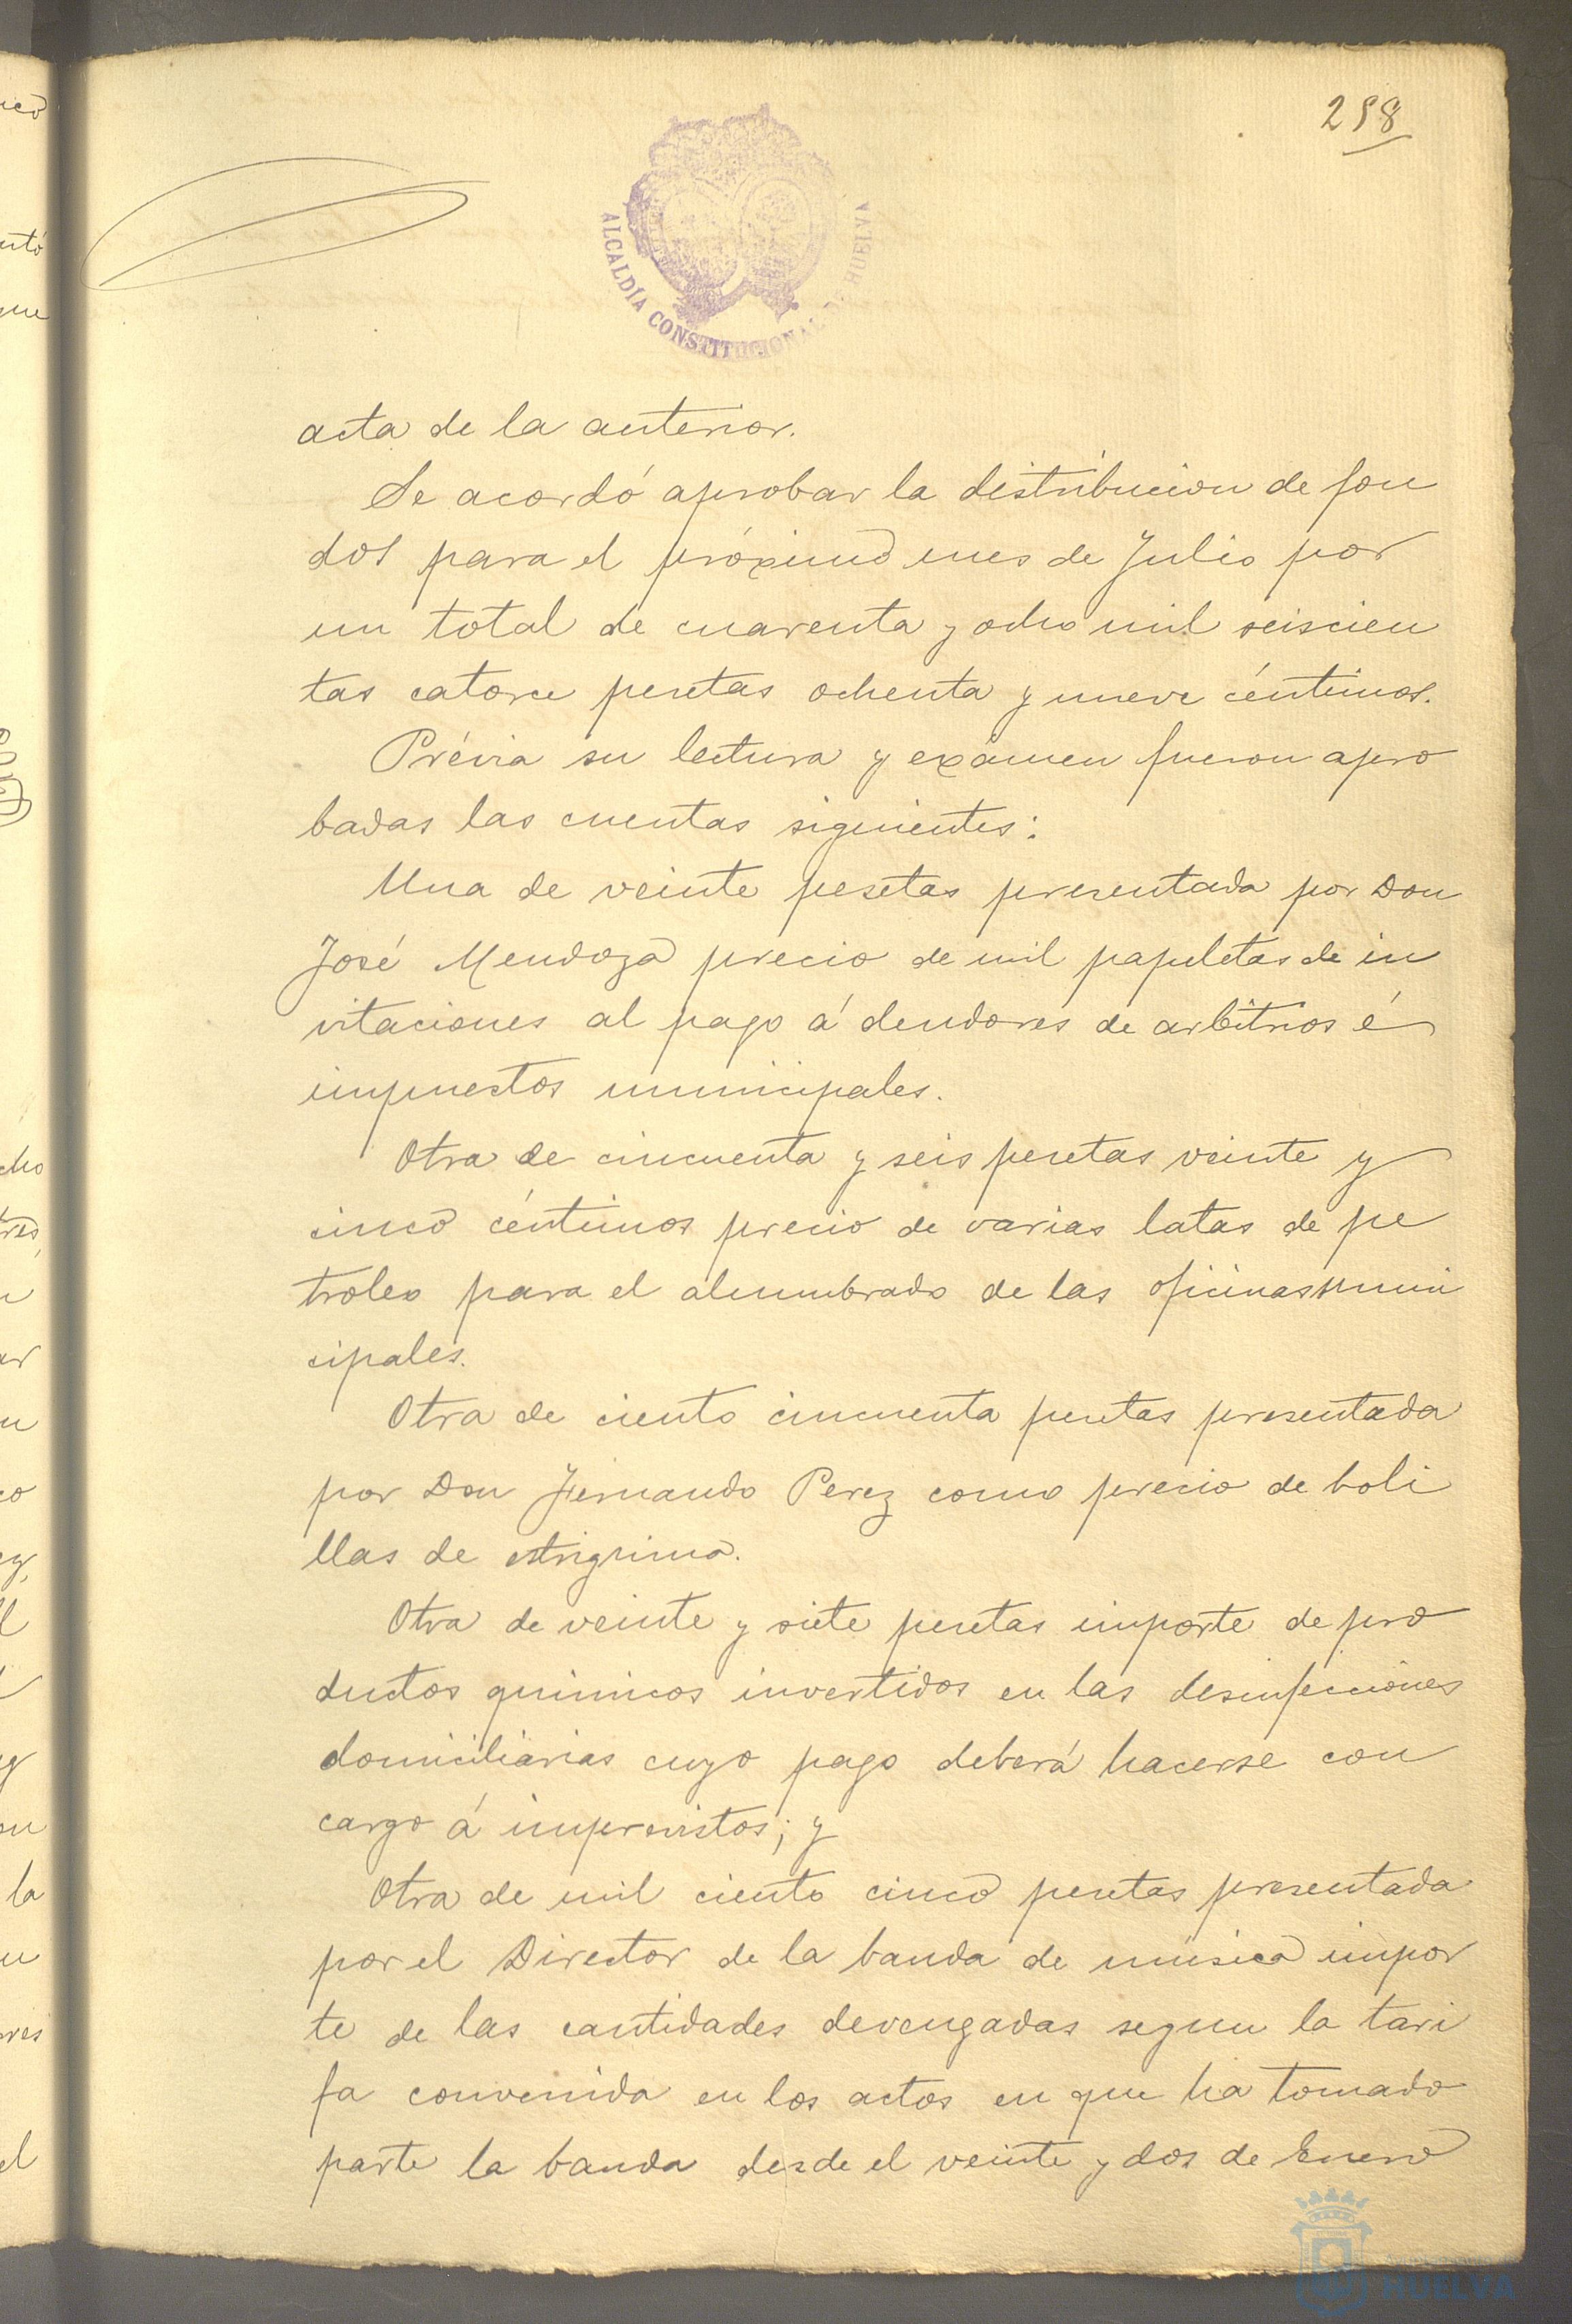 258
ALCALDÍA CONSTITUCIONAL HUELVA
acta de la anterior.
Se acordó aprobar la distribucion de fon
dos para el próximo mes de Julio por
un total de cuarenta y ocho mil seiscien
tas catorce pesetas ochenta y nueve céntimos.
Prévia su lectura y exámen fueron apro
badas las cuentas siguientes:
Una de veinte pesetas presentada por Don
José Mendoza precio de mil papeletas de in
vitaciones al pago á deudores de arbitrios é
impuestos municipales.
Otra de cincuenta y seis pesetas veinte y
cinco céntimos precio de varias latas de pe
troleo para el alumbrado de las oficinas muni
cipales.
Otra de ciento cincuenta pesetas presentada
por Don Fernando Perez como precio de boli
llas de estrignina.
Otra de veinte y siete pesetas importe de pro
ductos quimicos invertidos en las desinfecciones
domiciliarias cuyo pago deberá hacerse con
cargo á imprevistos; y
Otra de mil ciento cinco pesetas presentada
por el Director de la banda de música impor
te de las cantidades devengadas segun la tari
fa convenida en los actos en que ha tomado
parte la banda desde el veinte y dos de Enero
HUELVA